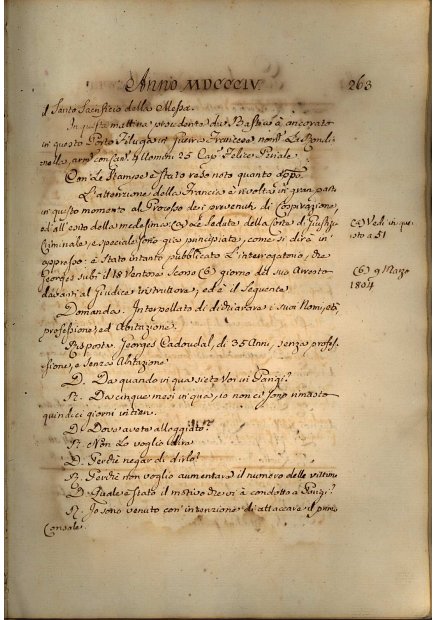 Anno MDCCCIV.
263
Il Santo Sacrificio della Messa.
In questa mattina procedente da Bastia è ancorata
in questo Porto Filuga in
con 4 Uomini 25 Cap. Felice
Con le Stampe è stato reso noto quanto app.o
L'attenzione della Francia è rivolta in gran parte
in questo momento al Processo dei prevenuti di Cospirazione,
ed all'esito della medesima: (a) Le Sedute della Corte di Giustizia
Criminale, e speciale sono già principiate, come si dirà in
appresso: è stato intanto pubblicato l'interrogatorio, che
Georges subì il 18 Ventoso Scorso (b) giorno del suo Arresto
davanti al Giudice Istruttore, ed è il seguente
Domanda. Interpellato di dichiarare i suoi Nomi, età,
professione, ed Abitazione.
Risposta. Georges Cadoudal, di 35 Anni, senza profes-
sione, e senza Abitazione.
D. Da quando in qua siete Voi in Parigi?
R. Da cinque mesi in qua, io non ci sono rimasto
quindici giorni intieri.
D. Dove avete alloggiato?
R. Non lo voglio dire
D. Perchè negar di dirlo?
R. Perchè non voglio aumentare il numero delle vittime
D. Quale è stato il motivo che vi à condotto a Parigi?
R. Io sono venuto con intenzione di attaccare il primo
Console.
(a) Vedi in que-
sto a 51
(b) 9 Marzo
1804